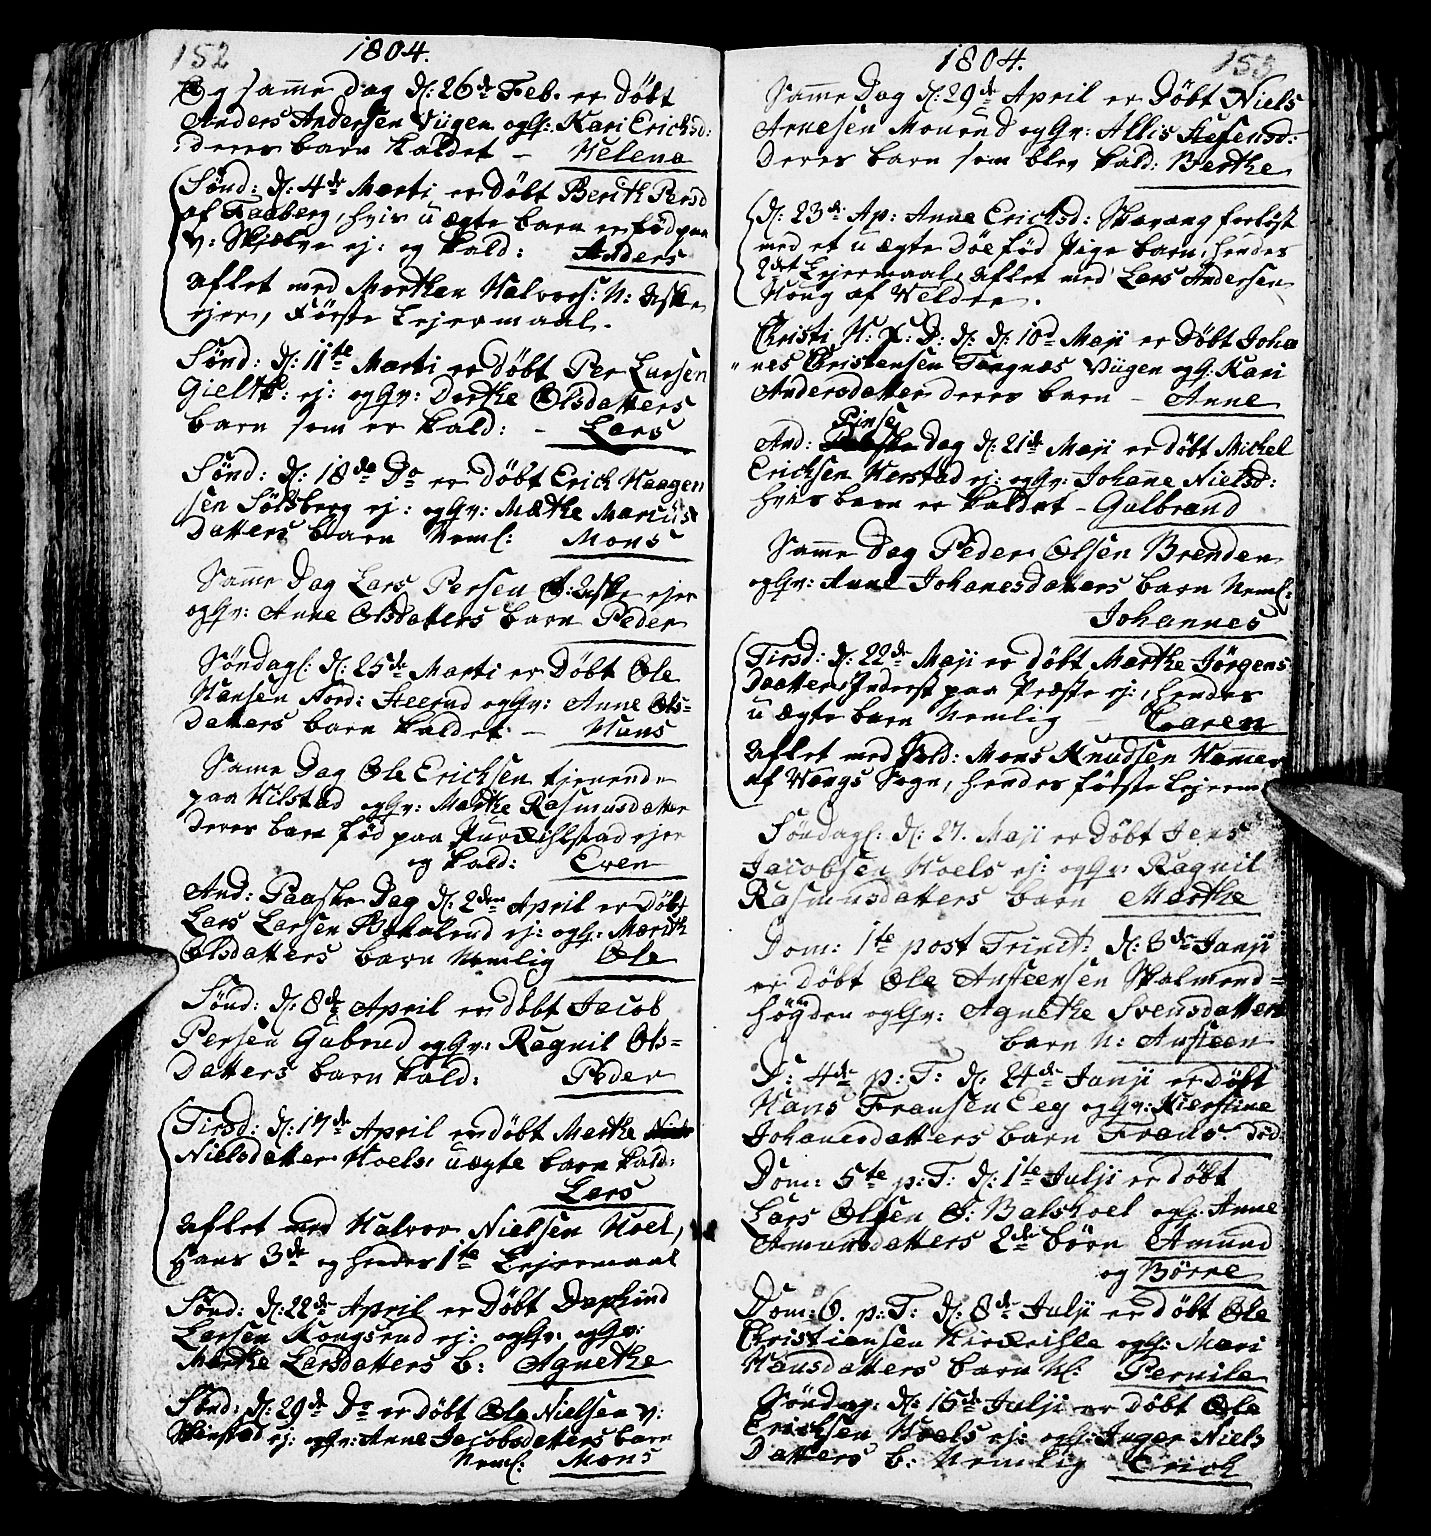 152
1804.
Og samme dag d: 26de Feb. er døbt
Anders Andersen Viigen og Gv: Kari Ericksd:
deres barn kaldet – Helena
Sønd: d: 4de Marti er døbt Berith Persd
af Faaberg, hvis uægte barn er fød paa
v: Skjelve ej: og kald: Anders
aflet med Morthen Halvors: N: Aske
ejer, første Lejermaal.
Sønd: d: 11te Marti er døbt Per Larsen
ej: og Gv: Dorthe Olsdatters
barn som er kald: – Lars
Sønd: d: 18de Do er døbt Erick Haagen
sen Sølsberg ej: og Gv: Mæthe Marcus
Datters barn Neml: Mons
Samme Dag Lars Persen Ø: Aske ejer
og Gv: Anne Olsdatters barn Peder
Søndagl: d: 25de Marti er døbt Ole
Hansen Nord: Steerud og Gv: Anne Ols=
Datters barn kaldet – Hans
Samme Dag Ole Ericksen tjenende
paa Hilstad og Gv: Marthe Rasmusdatter
deres barn fød paa ejer
og kald: Even
And: Paaske Dag d: 2den April er døbt
Lars Larsen ej: og Gv: Marith
Olsdatters barn Nemlig Ole
Sønd: d: 8de April er døbt Jacob
Persen Gubrud og Gv: Ragnil Ols=
Datters barn kald: Peder
Tirsd: d: 17de April er døbt Marthe
Nielsdatter Hoels uægte barn kald:
Lars
aflet med Halvor Nielsen Hoel,
Hans 3de og hendes 1te Lejermaal
Sønd: d: 22de April er døbt Dophind
Larsen Kongsrud ej: og Gv: og Gv:
Marthe Larsdatters b: Agnethe
Sønd: d: 29de Do er døbt Ole Nielsen v:
Skinstad ej: og Gv: Anne Jacobsdatters barn
Neml: Mons
153
1804.
Samme Dag d: 29de April er døbt Niels
Arnesen Monrud og Gv: Allis Stefensd:
deres barn som blev kald: Berthe
d: 23de Ap: Anne Ericksd: Skavang forløst
med et uægte død fød Pige barn, hendes
2det Lejermaal, aflet med Lars Andersen
Houg af Veldre.
Christi H: F: D: d: 10d Maji er døbt Joha
nes Christensen Tangnæs Viigen og G: Kari
Andersdatter deres barn – Anne
And: Pinse Dag d: 21de Maji er døbt Michel
Ericksen Herstad ej: og Gv: Johane Nielsd:
hvis barn er kaldet – Gulbrand
Samme Dag Peder Olsen Brenden
og Gv: Anne Johanesdatters barn Neml:
Johannes
Tirsd: d: 22de Maji er døbt Marthe Jörgens
Daatter Inderst paa Præste ej:, hendes
uægte barn Nemlig – Caren
aflet med Sold: Mons Knudsen Hammer
af Vangs Sogn, hendes første Lejerm
Søndagl: d: 27. Maji er døbt Jens
Jacobsen Hoels ej: og Gv: Ragnil
Rasmusdatters barn Marthe
Dom: 1te post Trinit: d: 3de Junji
er døbt Ole Ansteensen Skalmerud=
høgden og Gv: Agnethe Svensdatters
barn N: Ansteen
D: 4de p: T: d: 24de Junji er døbt
Hans Fransen Eeg og Gv: Kierstine
Johanesdatters barn Frans. død
Dom: 5te p: T: d: 1te Julji er døbt
Lars Olsen Ø: Balshoel og G: Anne
Amunsdatters 2de børn Amund
og Børre
Dom: 6. p: T: d: 8de Julji er døbt Ole
Christiansen og G: Mari
Hansdatters barn N: Pernile
Søndag: d: 15de Julji er døbt Ole
Ericksen Hoels ej: og G: Inger Niels
Datters b: Nemlig Erick